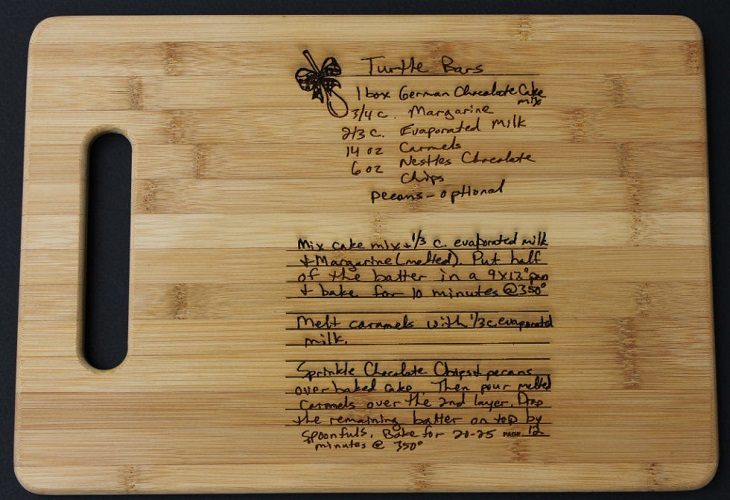 Turtle Bars
1 box German Chocolate Cake
mix
3/4 c. Margarine
2/3 c. Evaporated Milk
14 oz Caramels
6 oz Nestles Chocolate
Chips
pecans - optional
Mix cake mix + 1/3 c. evaporated milk
+ Margarine (melted). Put half
of the batter in a 9x13" pan
+ bake for 10 minutes @ 350°
Melt caramels with 1/3 c. evaporated
milk.
Sprinkle Chocolate Chips + pecans
over baked cake. Then pour melted
Caramels over the 2nd layer. Drop
the remaining batter on top by
Spoonfuls. Bake for 20-25 PAGE 12
minutes @ 350°